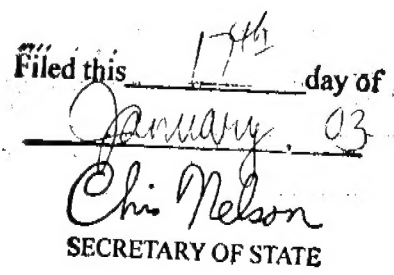 Filed this 17th day of
January, 03
Chis Nelson
SECRETARY OF STATE